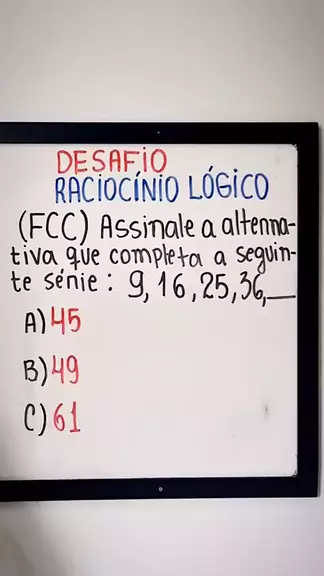 DESAFIO
RACIOCÍNIO LÓGICO
(FCC) Assinale a alterna-
tiva que completa a seguin-
te série: 9, 16, 25, 36, __
A) 45
B) 49
C) 61